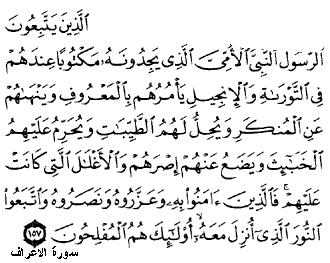 الَّذِينَ يَتَّبِعُونَ
الرَّسُولَ النَّبِىَّ الْأُمِّىَّ الَّذِى يَجِدُونَهُۥ مَكْتُوبًا عِندَهُمْ
فِى التَّوْرَىٰةِ وَالْإِنجِيلِ يَأْمُرُهُم بِالْمَعْرُوفِ وَيَنْهَىٰهُمْ
عَنِ الْمُنكَرِ وَيُحِلُّ لَهُمُ الطَّيِّبَٰتِ وَيُحَرِّمُ عَلَيْهِمُ
الْخَبَٰٓئِثَ وَيَضَعُ عَنْهُمْ إِصْرَهُمْ وَالْأَغْلَٰلَ الَّتِى كَانَتْ
عَلَيْهِمْ ۚ فَالَّذِينَ ءَامَنُوا بِهِۦ وَعَزَّرُوهُ وَنَصَرُوهُ وَاتَّبَعُوا
النُّورَ الَّذِىٓ أُنزِلَ مَعَهُۥٓ ۙ أُولَٰٓئِكَ هُمُ الْمُفْلِحُونَ ١٥٧
سورة الاعراف